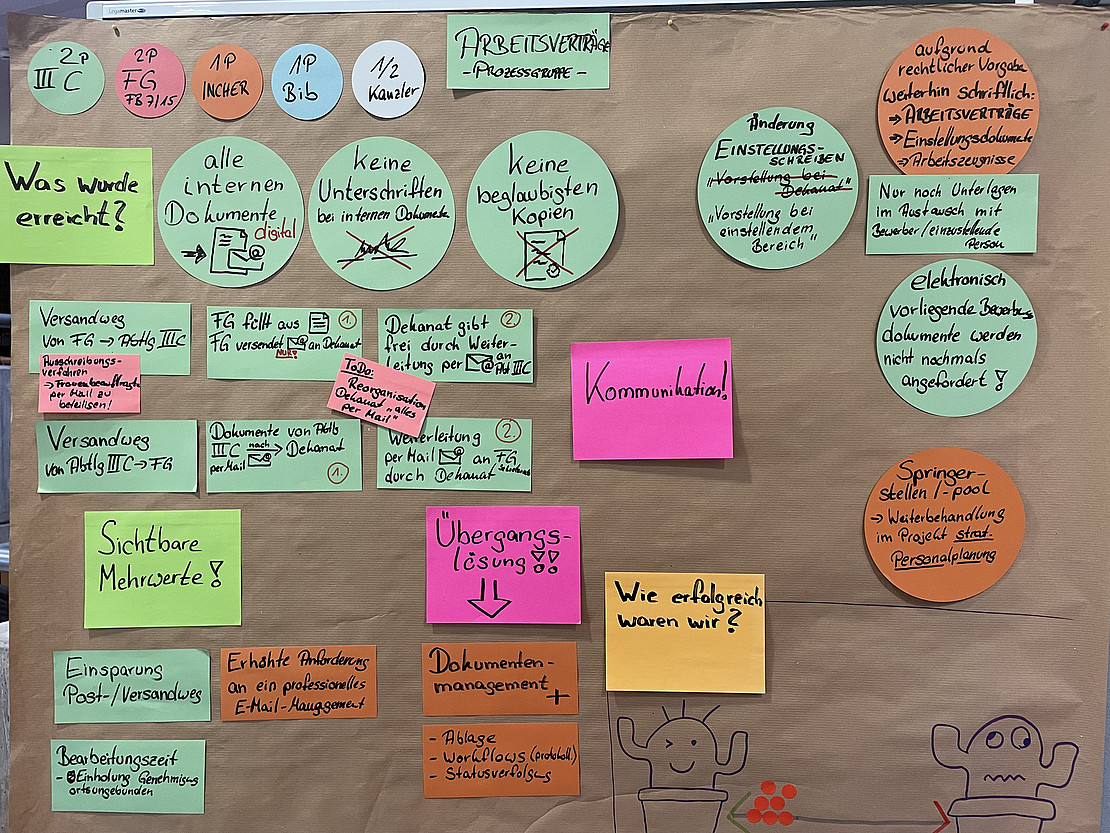 Legamaster
2P
III C
2P
FG
FB 7/15
1P
INCHER
1P
Bib
1/2
Kanzler
ARBEITSVERTRÄGE
- PROZESSGRUPPE -
aufgrund
rechtlicher Vorgabe
weiterhin schriftlich:
→ ARBEITSVERTRÄGE
→ Einstellungsdokumente
→ Arbeitszeugnisse
Was wurde
erreicht?
alle
internen
Dokumente
digital
keine
Unterschriften
bei internen Dokumente
keine
beglaubigten
Kopien
Änderung
EINSTELLUNGS-
SCHREIBEN
"Vorstellung bei
Dekanat"
"Vorstellung bei
einstellendem
Bereich"
Nur noch Unterlagen
im Austausch mit
Bewerber/einzustellende
Person
elektronisch
vorliegende Bewerbungs
dokumente werden
nicht nochmals
angefordert!
Versandweg
von FG → Abtlg III C
Ausschreibungs-
verfahren
→ Frauenbeauftragte
per Mail zu
beteiligen!
FG füllt aus 1.
FG versendet @ an Dekanat
NUR
Dekanat gibt 2.
frei durch Weiter-
leitung per @ an
Abt III C
ToDo:
Reorganisation
Dekanat "alles
per Mail"
Kommunikation!
Versandweg
von Abtlg III C → FG
Dokumente von Abtlg
III C nach → Dekanat
per Mail @ 1.
Weiterleitung 2.
per Mail @ an FG
durch Dekanat
Springer-
stellen / -pool
→ Weiterbehandlung
im Projekt strat.
Personalplanung
Sichtbare
Mehrwerte!
Übergangs-
lösung!!
Wie erfolgreich
waren wir?
Einsparung
Post-/Versandweg
Erhöhte Anforderung
an ein professionelles
E-Mail-Management
Dokumenten-
management +
- Ablage
- Workflows (protokoll.)
- Statusverfolgung
Bearbeitungszeit
- Einholung Genehmigung
ortsungebunden